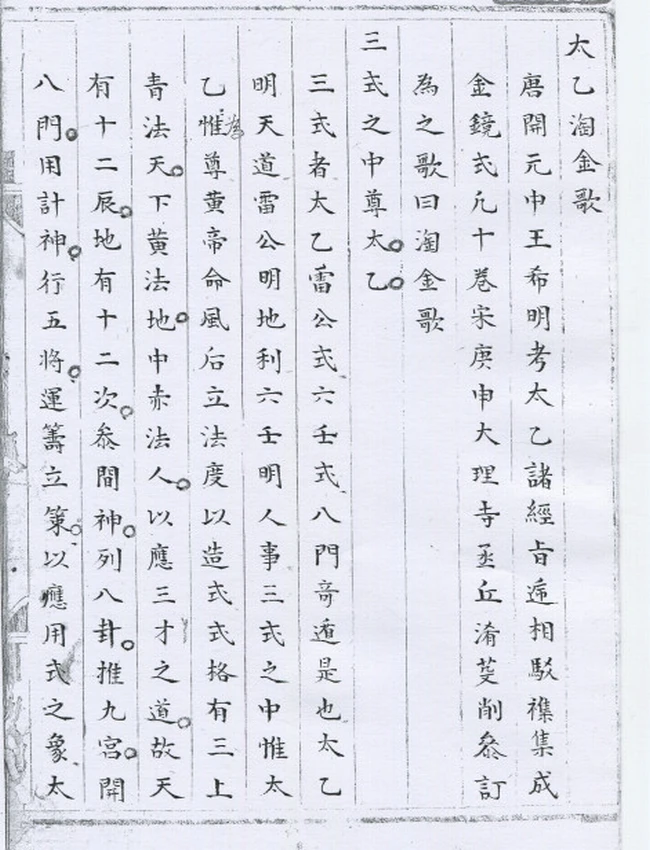 太乙淘金歌
唐開元中王希明考太乙諸經旨遁相駁襍集成
金鏡式凡十卷宋庚申大理寺丞丘濬芟削叅訂
為之歌曰淘金歌
三式之中尊太乙
三式者太乙雷公式六壬式八門奇遁是也太乙
明天道雷公明地利六壬明人事三式之中惟太
乙惟為尊黄帝命風后立法度以造式式格有三上
青法天下黄法地中赤法人以應三才之道故天
有十二辰地有十二次叅間神列八卦推九宮開
八門用計神行五將運籌立策以應用式之象太